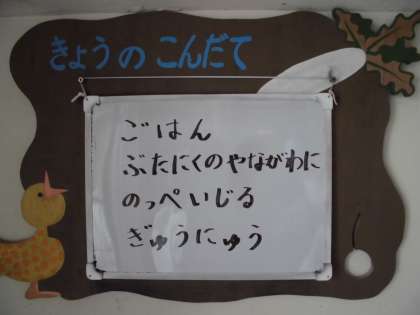 きょうのこんだて
ごはん
ぶたにくのやながわに
のっぺいじる
ぎゅうにゅう